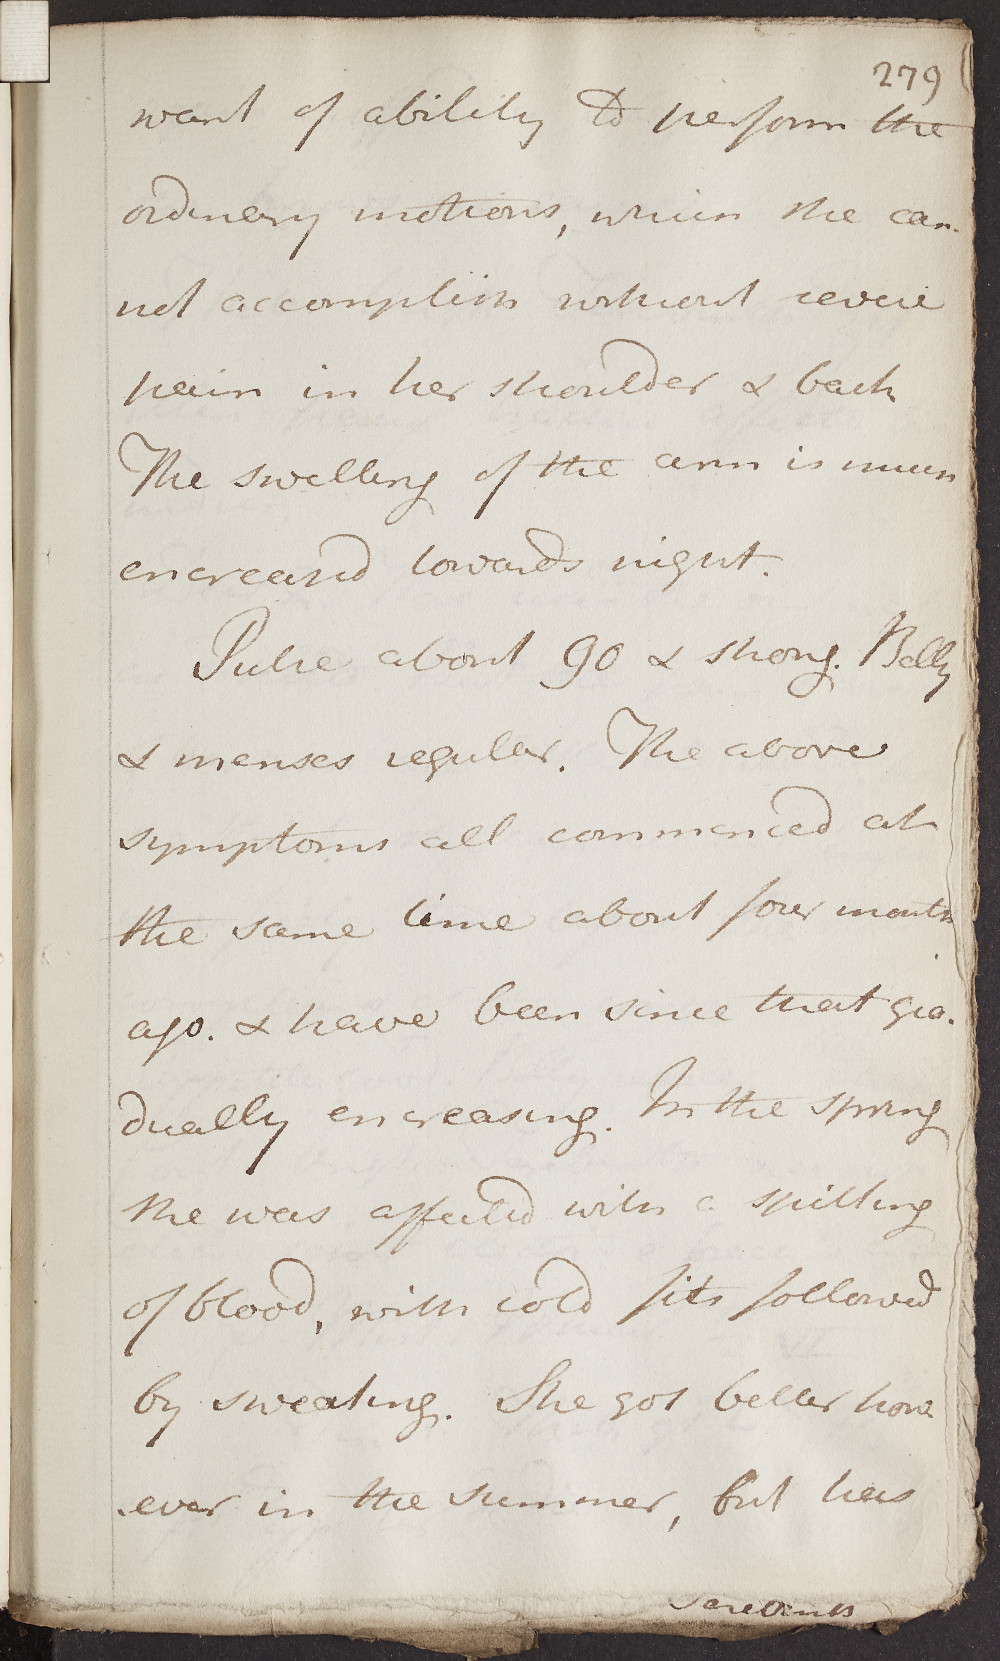 279
want of ability to perform the
ordinary motions, which she can-
not accomplish without severe
pain in her shoulder & back
The swelling of the arm is much
encreased towards night.
Pulse about 90 & strong. Belly
& menses regular. The above
symptoms all commenced at
the same time about four months
ago. & have been since that gra-
dually encreasing. In the spring
she was affected with a spitting
of blood, with cold fits followed
by sweating. She got better how
-ever in the summer, but has